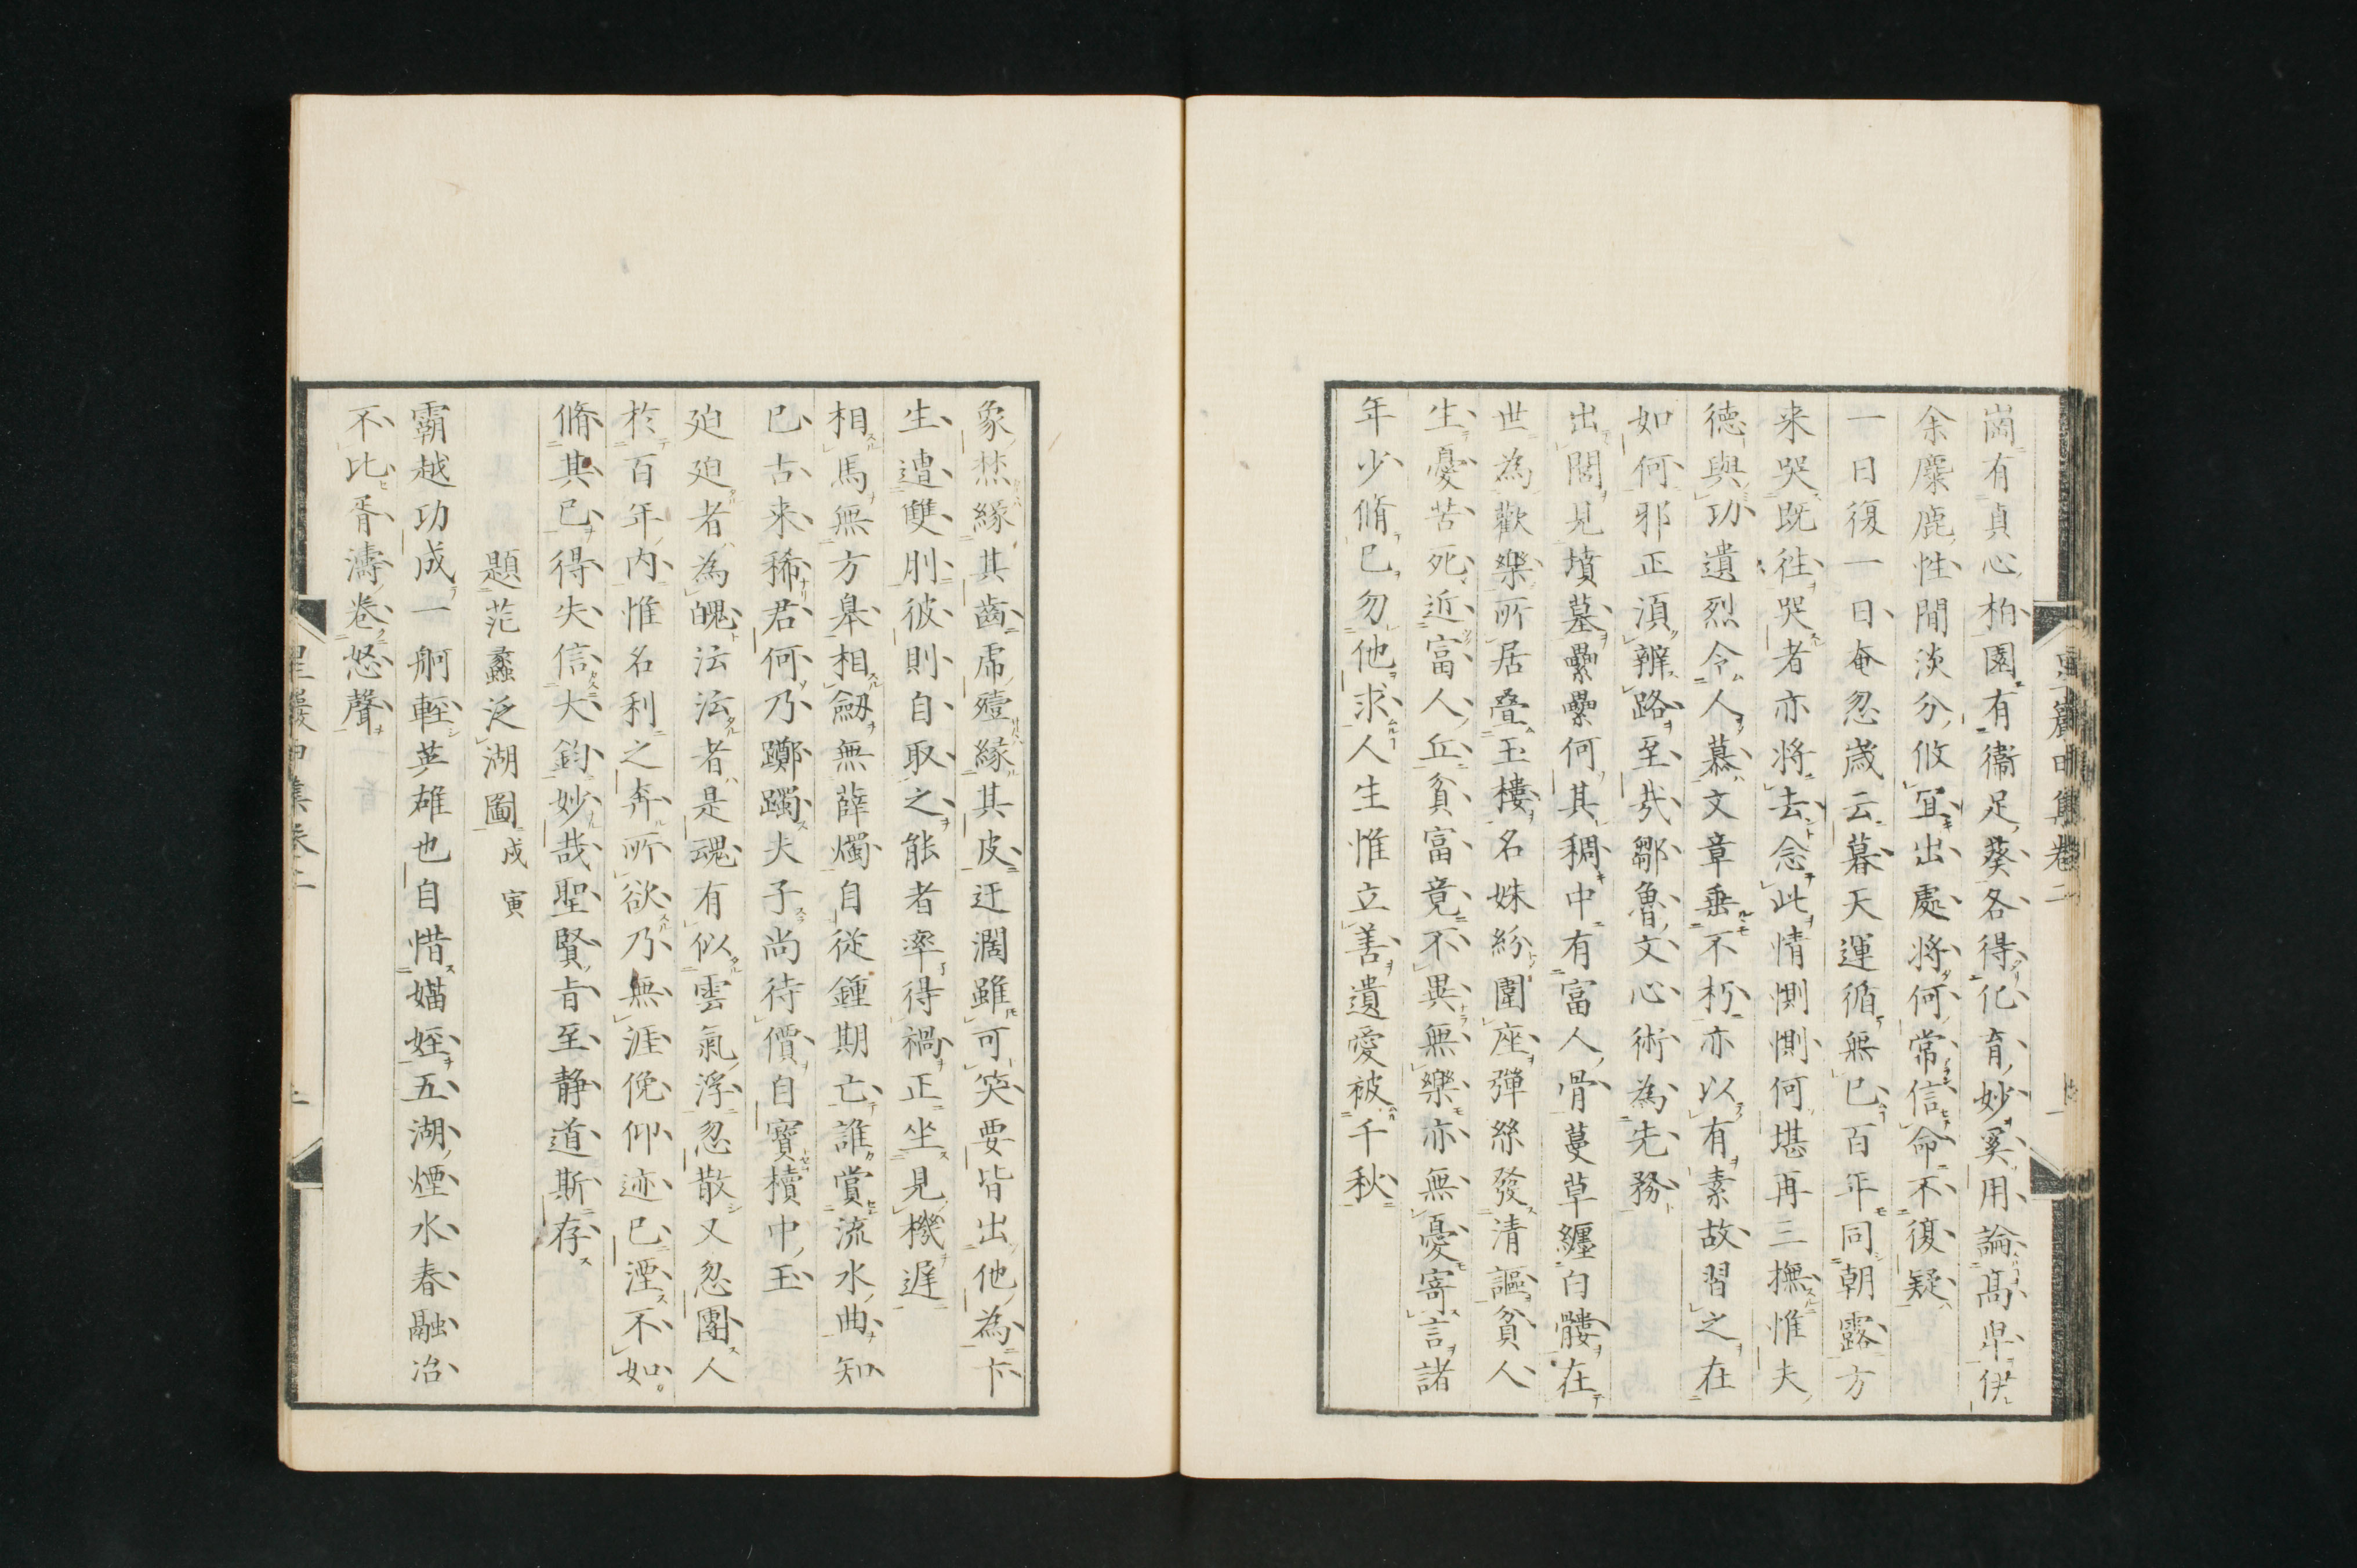 崗有貞心柏園有衞足葵各得化育妙奚用論高卑伊
余麋鹿性閒淡分攸宜出處將何常信命不復疑
一日復一日奄忽歳云暮天運循無已百年同朝露方
来哭既往哭者亦將去念此情惻惻何堪再三撫惟夫
德與功遺烈令人慕文章垂不朽亦以有素故習之在
如何邪正湏辨路至哉鄒魯文心術為先務
出閣見墳墓纍纍何其稠中有富人骨蔓草纏白髏在
世為歡樂所居疊玉樓名姝紛圍座彈絲發清謳貧人
生憂苦死近富人丘貧富竟不異無樂亦無憂寄言諸
年少脩已勿他求人生惟立善遺愛被千秋
象焚緣其齒虎殪緣其皮迂濶雖可笑要皆出他為卞
生遭雙刖彼則自取之能者率得禍正坐見機遅
相馬無方皐相劔無薛燭自従鍾期亡誰賞流水曲知
已古来稀君何乃躑躅夫子尚待價自寳櫝中玉
廹廹者為魄沄沄者是魂有似雲氣浮忽散又忽團人
扵百年内惟名利之奔所欲乃無涯俛仰迹已湮不如
脩其已得失信大鈞妙哉聖賢旨至静道斯存
題范蠡泛湖圖戍寅
霸越功成一舸輕英雄也自惜媌娙五湖煙水春融冶
不比胥濤卷怒聲